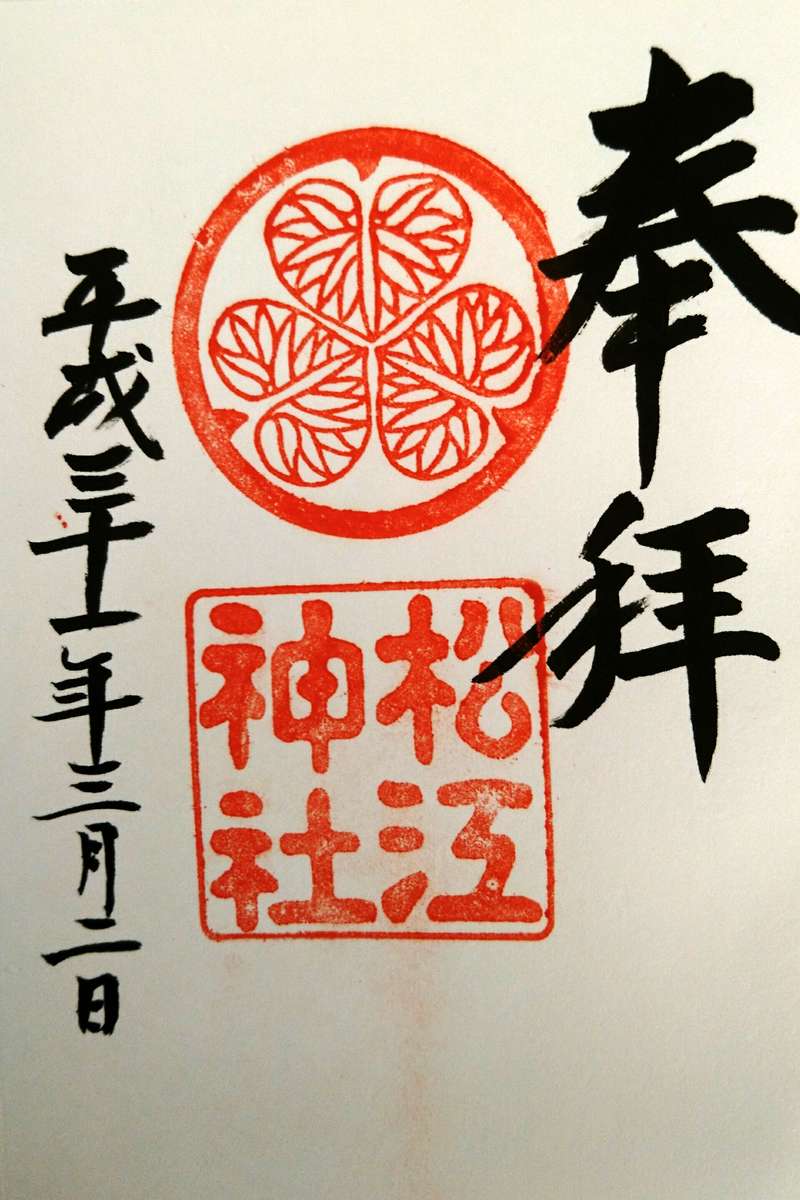 奉拝
松江
神社
平成三十一年三月二日